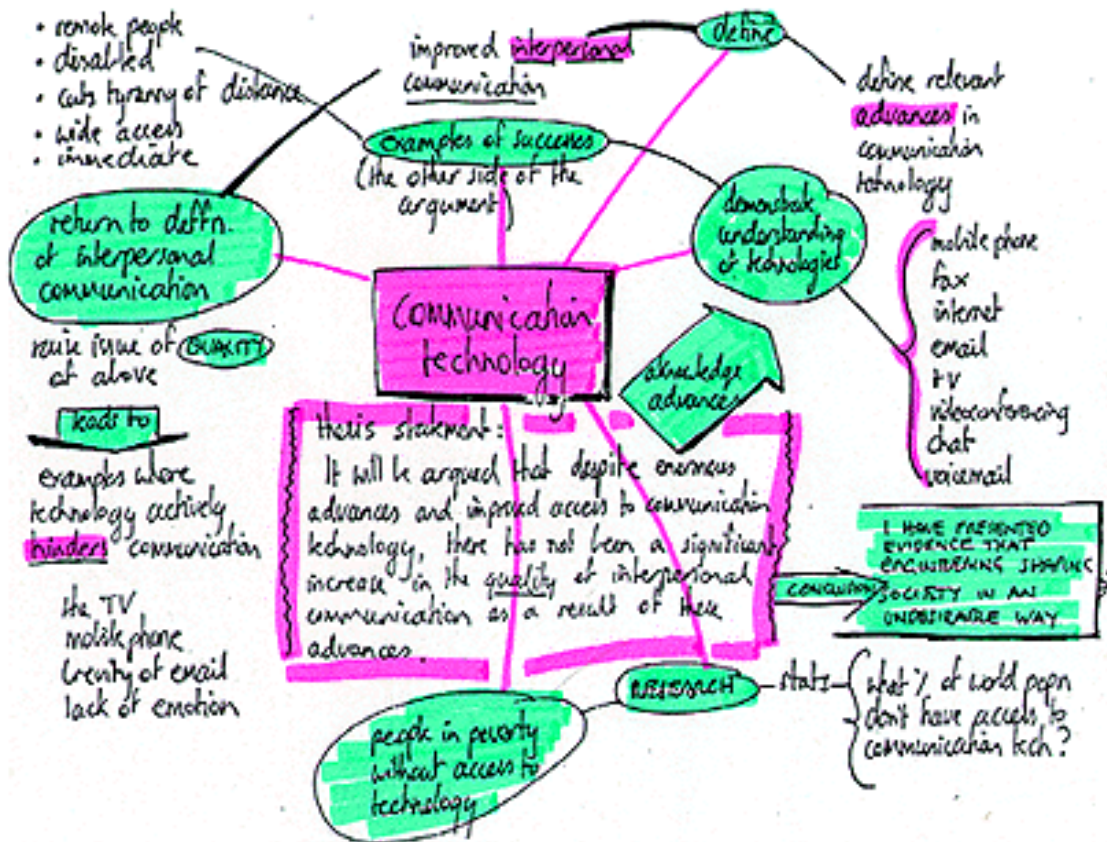 • remote people
• disabled
• cuts tyranny of distance
• wide access
• immediate
improved interpersonal
communication
define
define relevant
advances in
communication
technology
examples of successes
(the other side of the
argument)
return to deffn.
of interpersonal
communication
demonstrate
understanding
of technologies
mobile phone
fax
internet
email
TV
videoconferencing
chat
voicemail
communication
technology
raise issue of QUALITY
of above
aknowledge
advances
leads to
examples where
technology actively
hinders communication
the TV
mobile phone
brevity of email
lack of emotion
thesis statement:
It will be argued that despite enormous
advances and improved access to communication
technology, there has not been a significant
increase in the quality of interpersonal
communication as a result of these
advances.
CONCLUSION
I HAVE PRESENTED
EVIDENCE THAT
ENGINEERING SHAPING
SOCIETY IN AN
UNDESIRABLE WAY
RESEARCH
stats
what % of world popn
don't have access to
communication tech?
people in poverty
without access to
technology